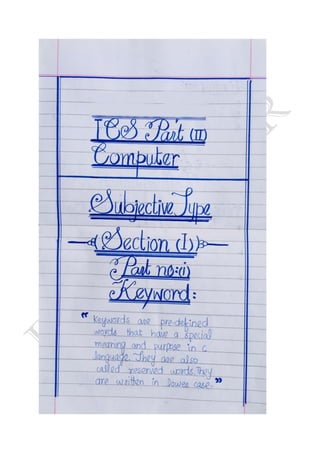 ICS Part (II)
Computer
Subjective Type
Section (I)
Part no:(i)
Keyword:
" Keywords are pre-defined
words that have a special
meaning and purpose in c
language. They are also
called reserved words. They
are written in lower case. "